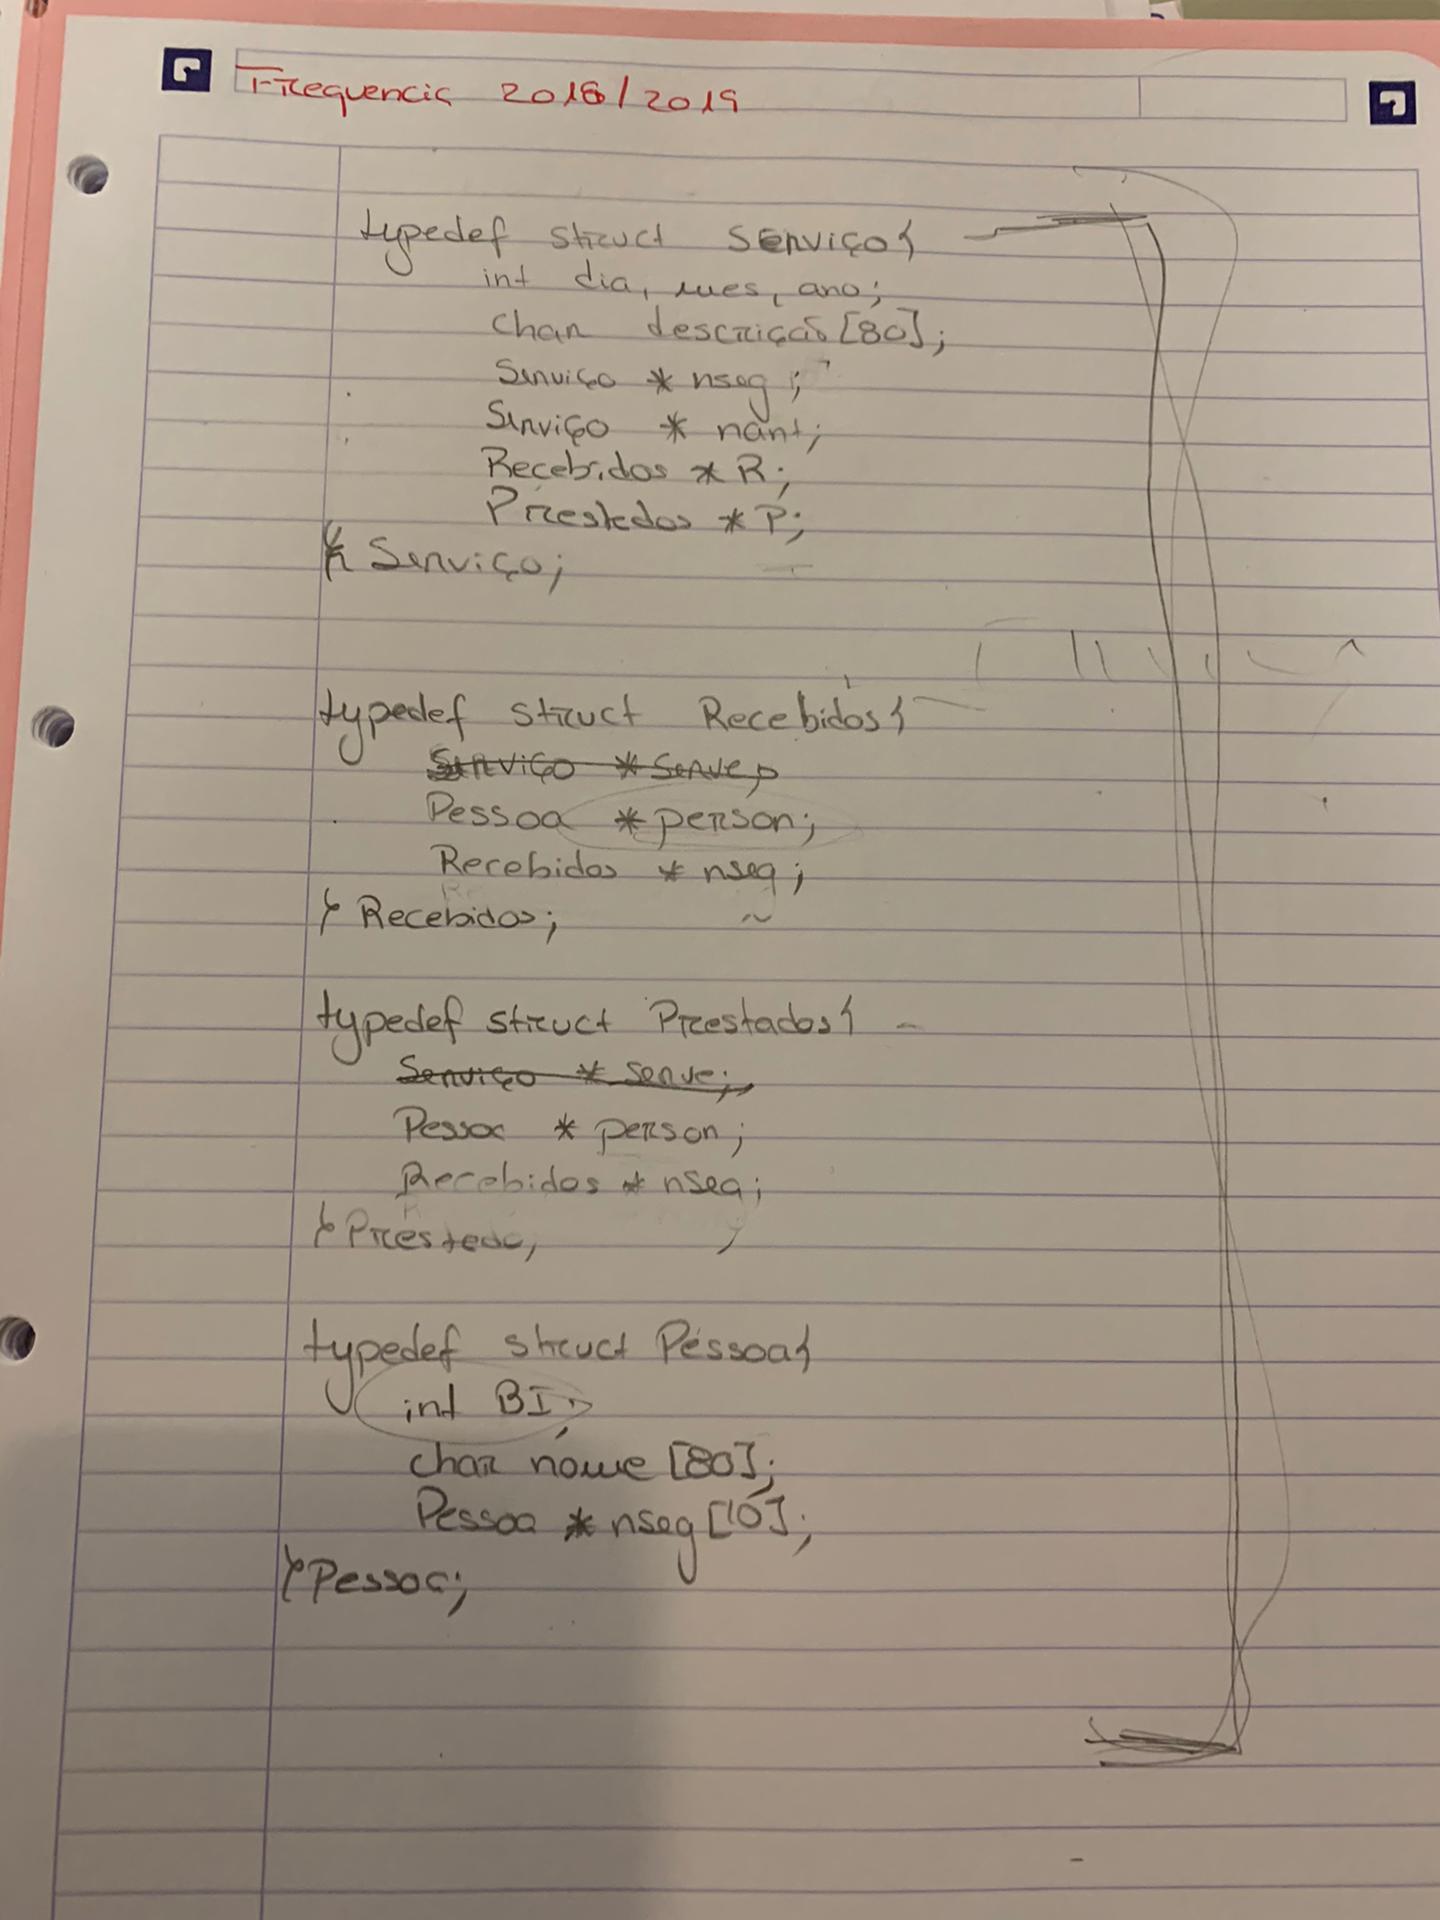 Frequencia 2018/2019
typedef struct Serviço{
int dia, mes, ano;
char descrição[80];
Serviço * nseg;
Serviço * nant;
Recebidos * R;
Prestados * P;
} Serviço;
typedef struct Recebidos{
Serviço * serve;
Pessoa * person;
Recebidos * nseg;
} Recebidos;
typedef struct Prestados{
Serviço * serve;
Pessoa * person;
Recebidos * nseg;
} Prestado;
typedef struct Pessoa{
int BI;
char nome [80];
Pessoa * nseg [10];
} Pessoa;